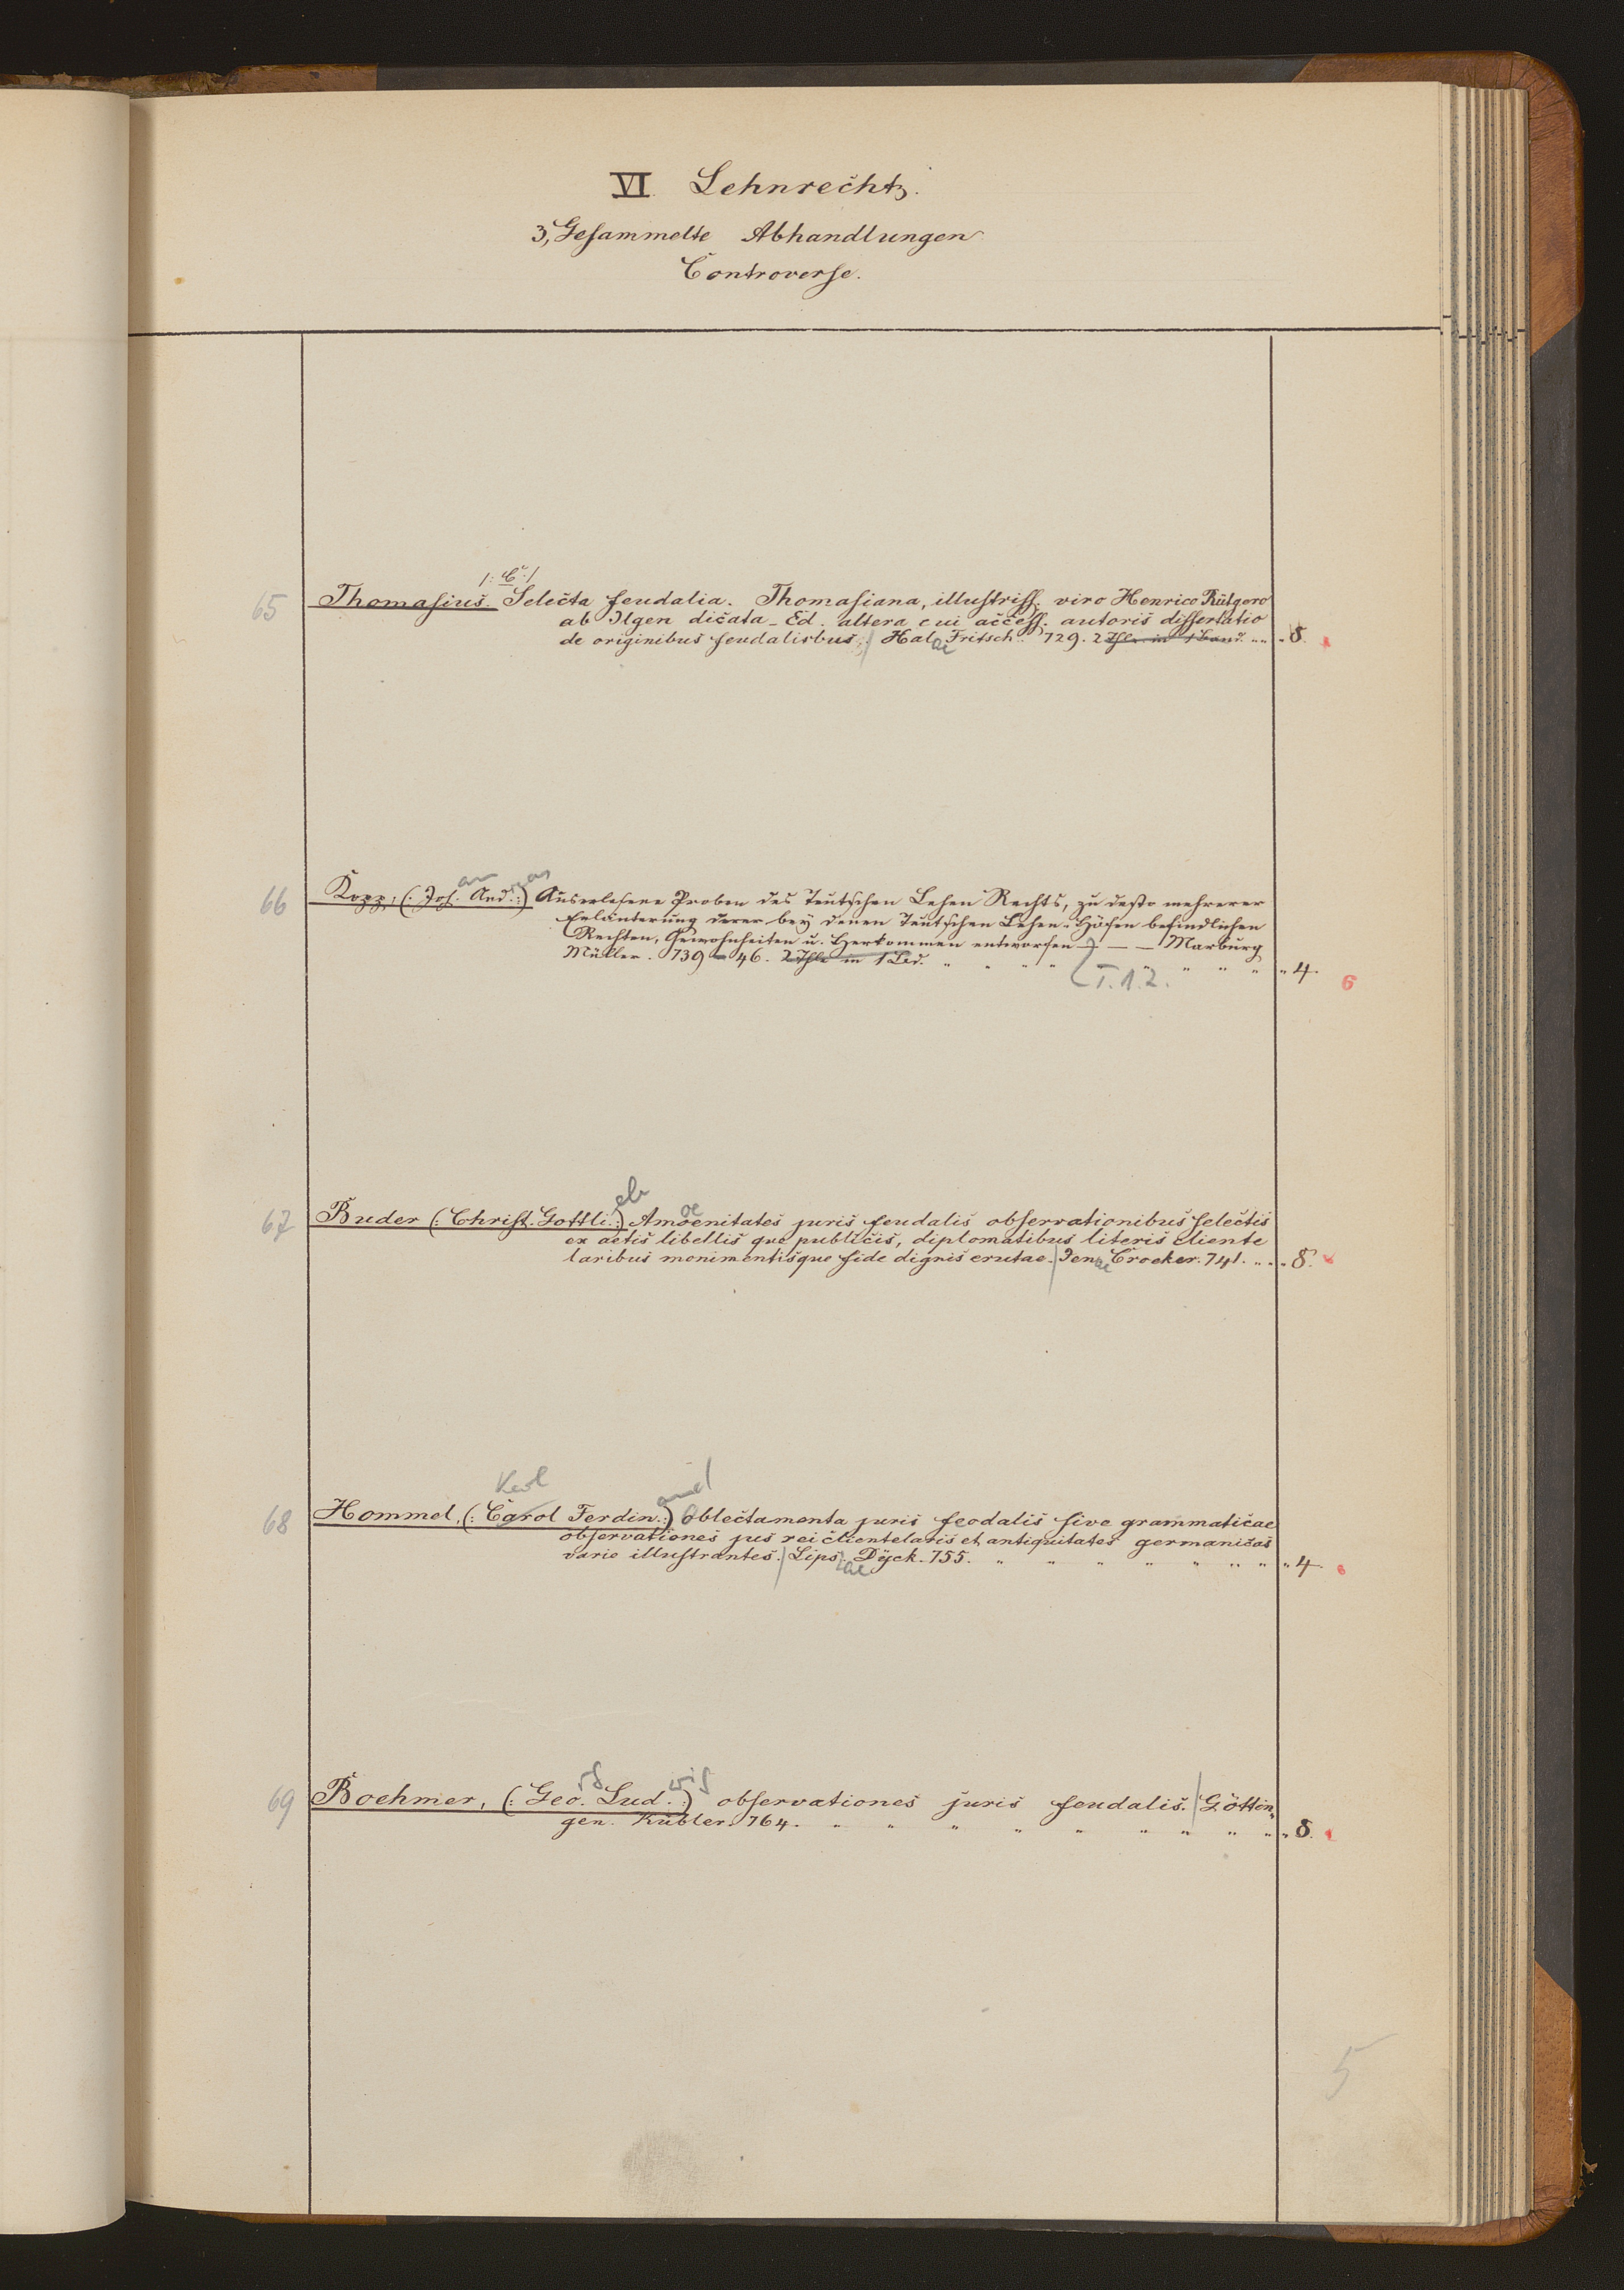 VI. Lehnrecht.
3, Gesammelte Abhandlungen
Controverse.
/: C :/
65 Thomasius. Selecta feudalia. Thomasiana, illustriss. viro Henrico Rütgero
ab Ilgen dicata - Ed. altera cui access. autoris dissertatio
de originibus feudalibus; Halae Fritsch. 729. 2 Thle in 1 Band. 8.
66 Kopp, (: Jos. And :) Auserlesene Proben des Teutschen Lehen Rechts, zu desto mehrerer
Erläuterung derer bey denen Teutschen Lehen-Höfen befindlichen
Rechten, Gewohnheiten u. Herkommen entworfen — — Marburg
Müller. 739 - 46. 2 Thle in 1 Bd. 4. 6
T. 1. 2.
67 Buder (: Christ. Gottlieb :) Amoenitates juris feudalis observationibus selectis
ex actis libellis que publicis, diplomatibus literis cliente
laribus monimentisque fide dignis erutae. Jenae Croeker. 741. 8.
Karl
68 Hommel, (: Carol Ferdinand :) Oblectamenta juris feodalis sive grammaticae
observationes jus rei clientelaris et antiquitates germanicas
varie illustrantes. Lipsiae Dÿck. 755. 4.
69 Boehmer, (: Geo. Lud. :) observationes juris feudalis. Göttin,,
gen. Kübler. 764. 8.
5